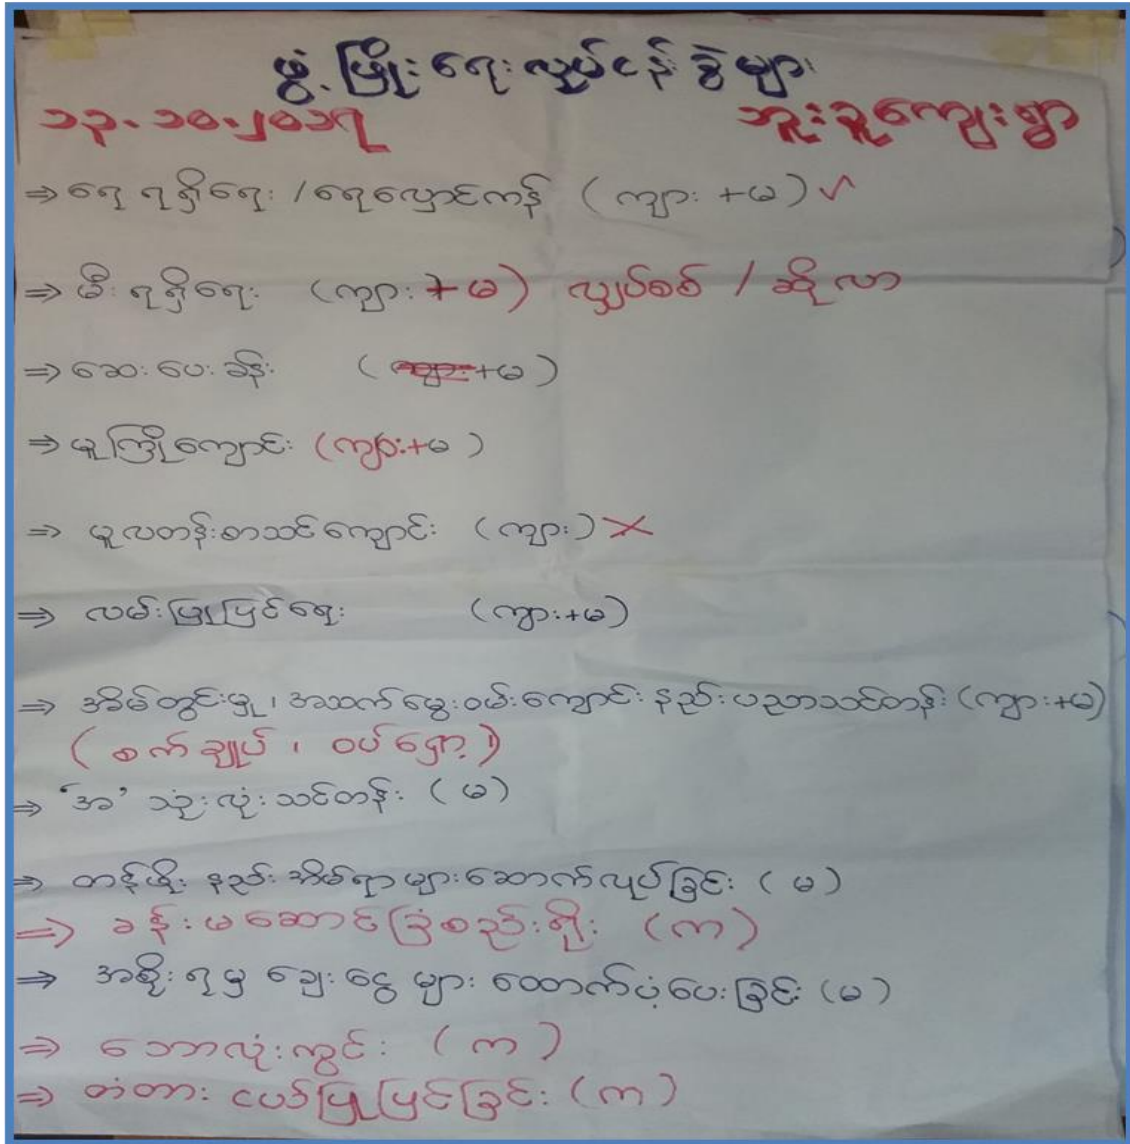 ဖွံ့ဖြိုးရေးလုပ်ငန်းခွဲများ
၁၃.၁၀.၂၀၁၇ ဘူးခူကျေးရွာ
⇒ ရေရရှိရေး / ရေလှောင်ကန် (ကျား +မ) ✓
⇒ မီးရရှိရေး (ကျား + မ) လျှပ်စစ် / ဆိုလာ
⇒ ဆေးပေးခန်း (ကျား+မ)
⇒ မူကြိုကျောင်း (ကျား+မ)
⇒ မူလတန်းစာသင်ကျောင်း (ကျား) ✗
⇒ လမ်းပြုပြင်ရေး (ကျား+မ)
⇒ အိမ်တွင်းမှု၊ အသက်မွေးဝမ်းကျောင်းနည်းပညာသင်တန်း (ကျား+မ)
(စက်ချုပ်၊ ဝပ်ရှော့)
⇒ ‘အ’ သုံးလုံးသင်တန်း (မ)
⇒ တန်ဖိုးနည်းအိမ်ရာများဆောက်လုပ်ခြင်း (မ)
⇒ ခန်းမဆောင်ခြံစည်းရိုး (က)
⇒ အစိုးရမှ ချေးငွေများ ထောက်ပံ့ပေးခြင်း (မ)
⇒ ဘောလုံးကွင်း (က)
⇒ တံတားငယ်ပြုပြင်ခြင်း (က)